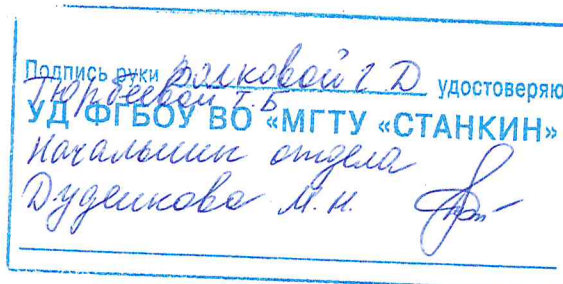 Подпись руки Волковой Г Д удостоверяю
Тюрбеевой Т.Б
УД ФГБОУ ВО «МГТУ «СТАНКИН»
Начальник отдела
Дуденкова М.Н.